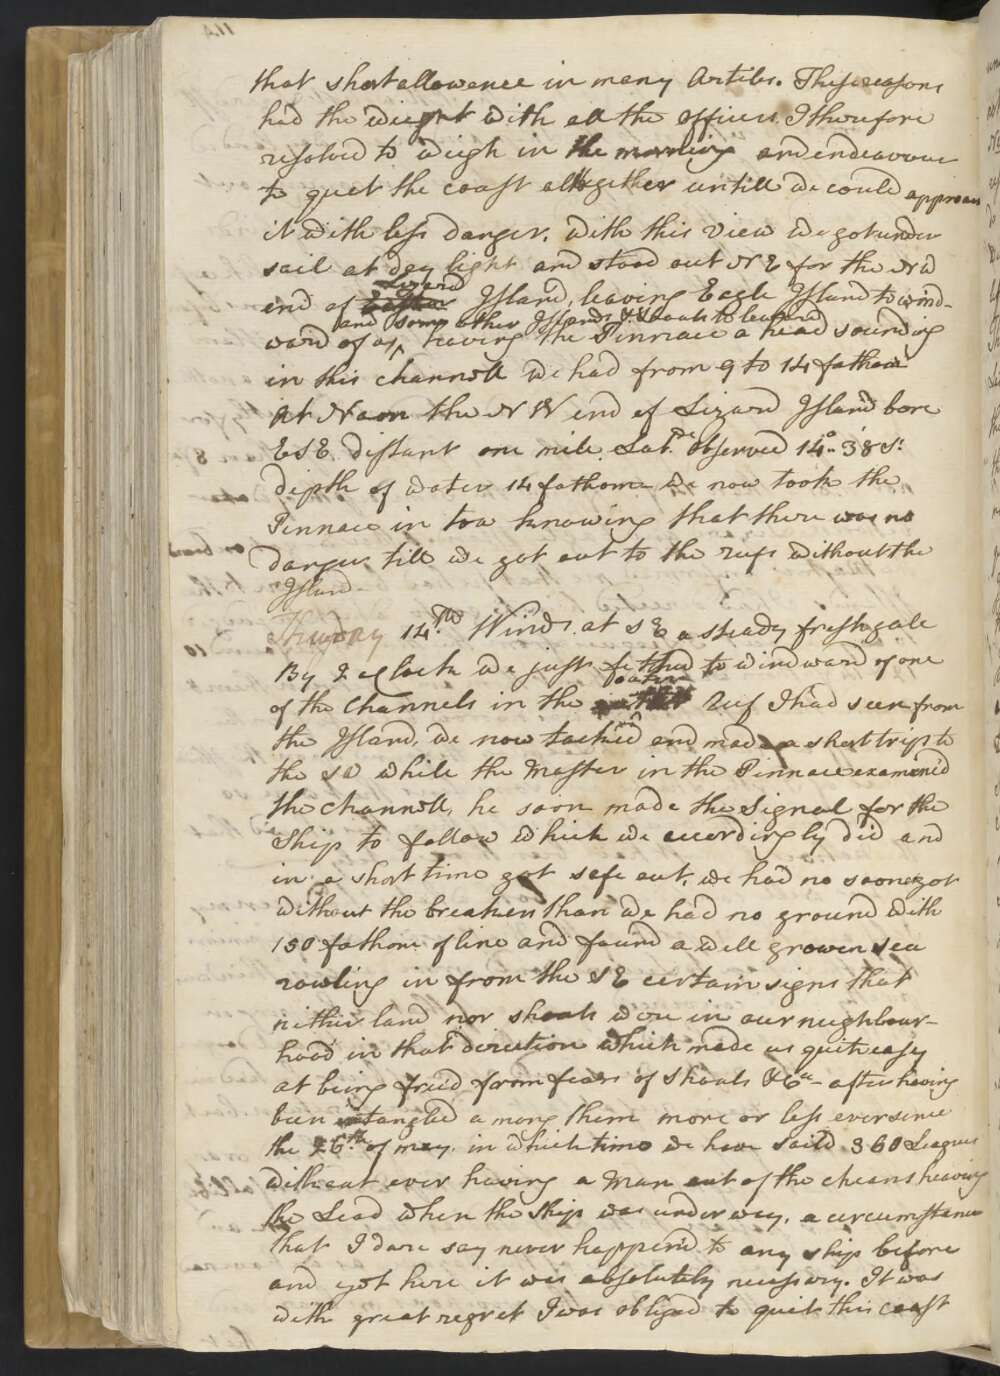 that short allowance in many Articles. These reasons
had the weight with all the officers I therefore
resolved to weigh in the morning and endeavour
to quet the coast alltogether untill we could approach
it with less danger. With this View we got under
sail at day light and stood out NE for the NW
Lizard
end of Island, leaving Eagle Island to wind-
and some other Islands & shoals to leward
ward of us, having the Pinnace a head sounding
in this Channell we had from 9 to 14 fathom
At Noon the NW end of Lizard Island bore
ESE distant one mile. Latde. Observed 14°.. 38 S.
depth of water 14 fathom We now took the
Pinnace in tow knowing that there was no
danger till we got out to the reefs without the
Island
Thursday 14th. Winds at SE a steady fresh gale
By 2 oClock we just fetched to windward of one
outer
of the Channels in the Reef I had seen from
the Island, we now tacked and made a short trip to
the SW while the Master in the Pinnace examined
the Channell, he soon made the Signal for the
Ship to follow which we accordingly did and
in a short time got safe out. we had no sooner got
without the breakers than we had no ground with
150 fathom of line and found a well growen sea
rowling in from the SE certain signs that
neither land nor shoals were in our neighbour-
hood in that direction which made us quite easy
at being freed from fears of Shoals &ca- after having
been intangled among them more or less ever since
the 26th. of may, in which time we have saild 360 Leagues
without ever having a Man out of the cheans heaving
the Lead when the Ship was under way, a circumstance
that I dare say never happen'd to any ship before
and yet here it was absolutely necessary. It was
with great regret I was obliged to quit this coast